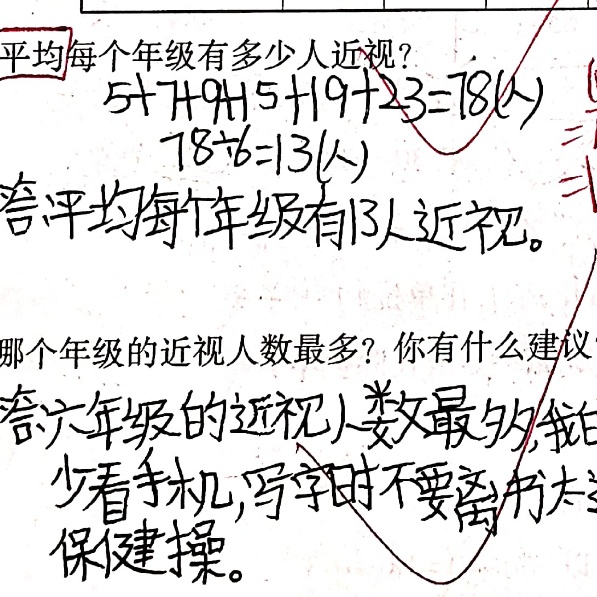 平均每个年级有多少人近视？
5+7+9+15+19+23=78(人)
78÷6=13(人)
答:平均每个年级有13人近视。
哪个年级的近视人数最多？你有什么建议
答:六年级的近视人数最多,我
少看手机,写字时不要离书太
保健操。